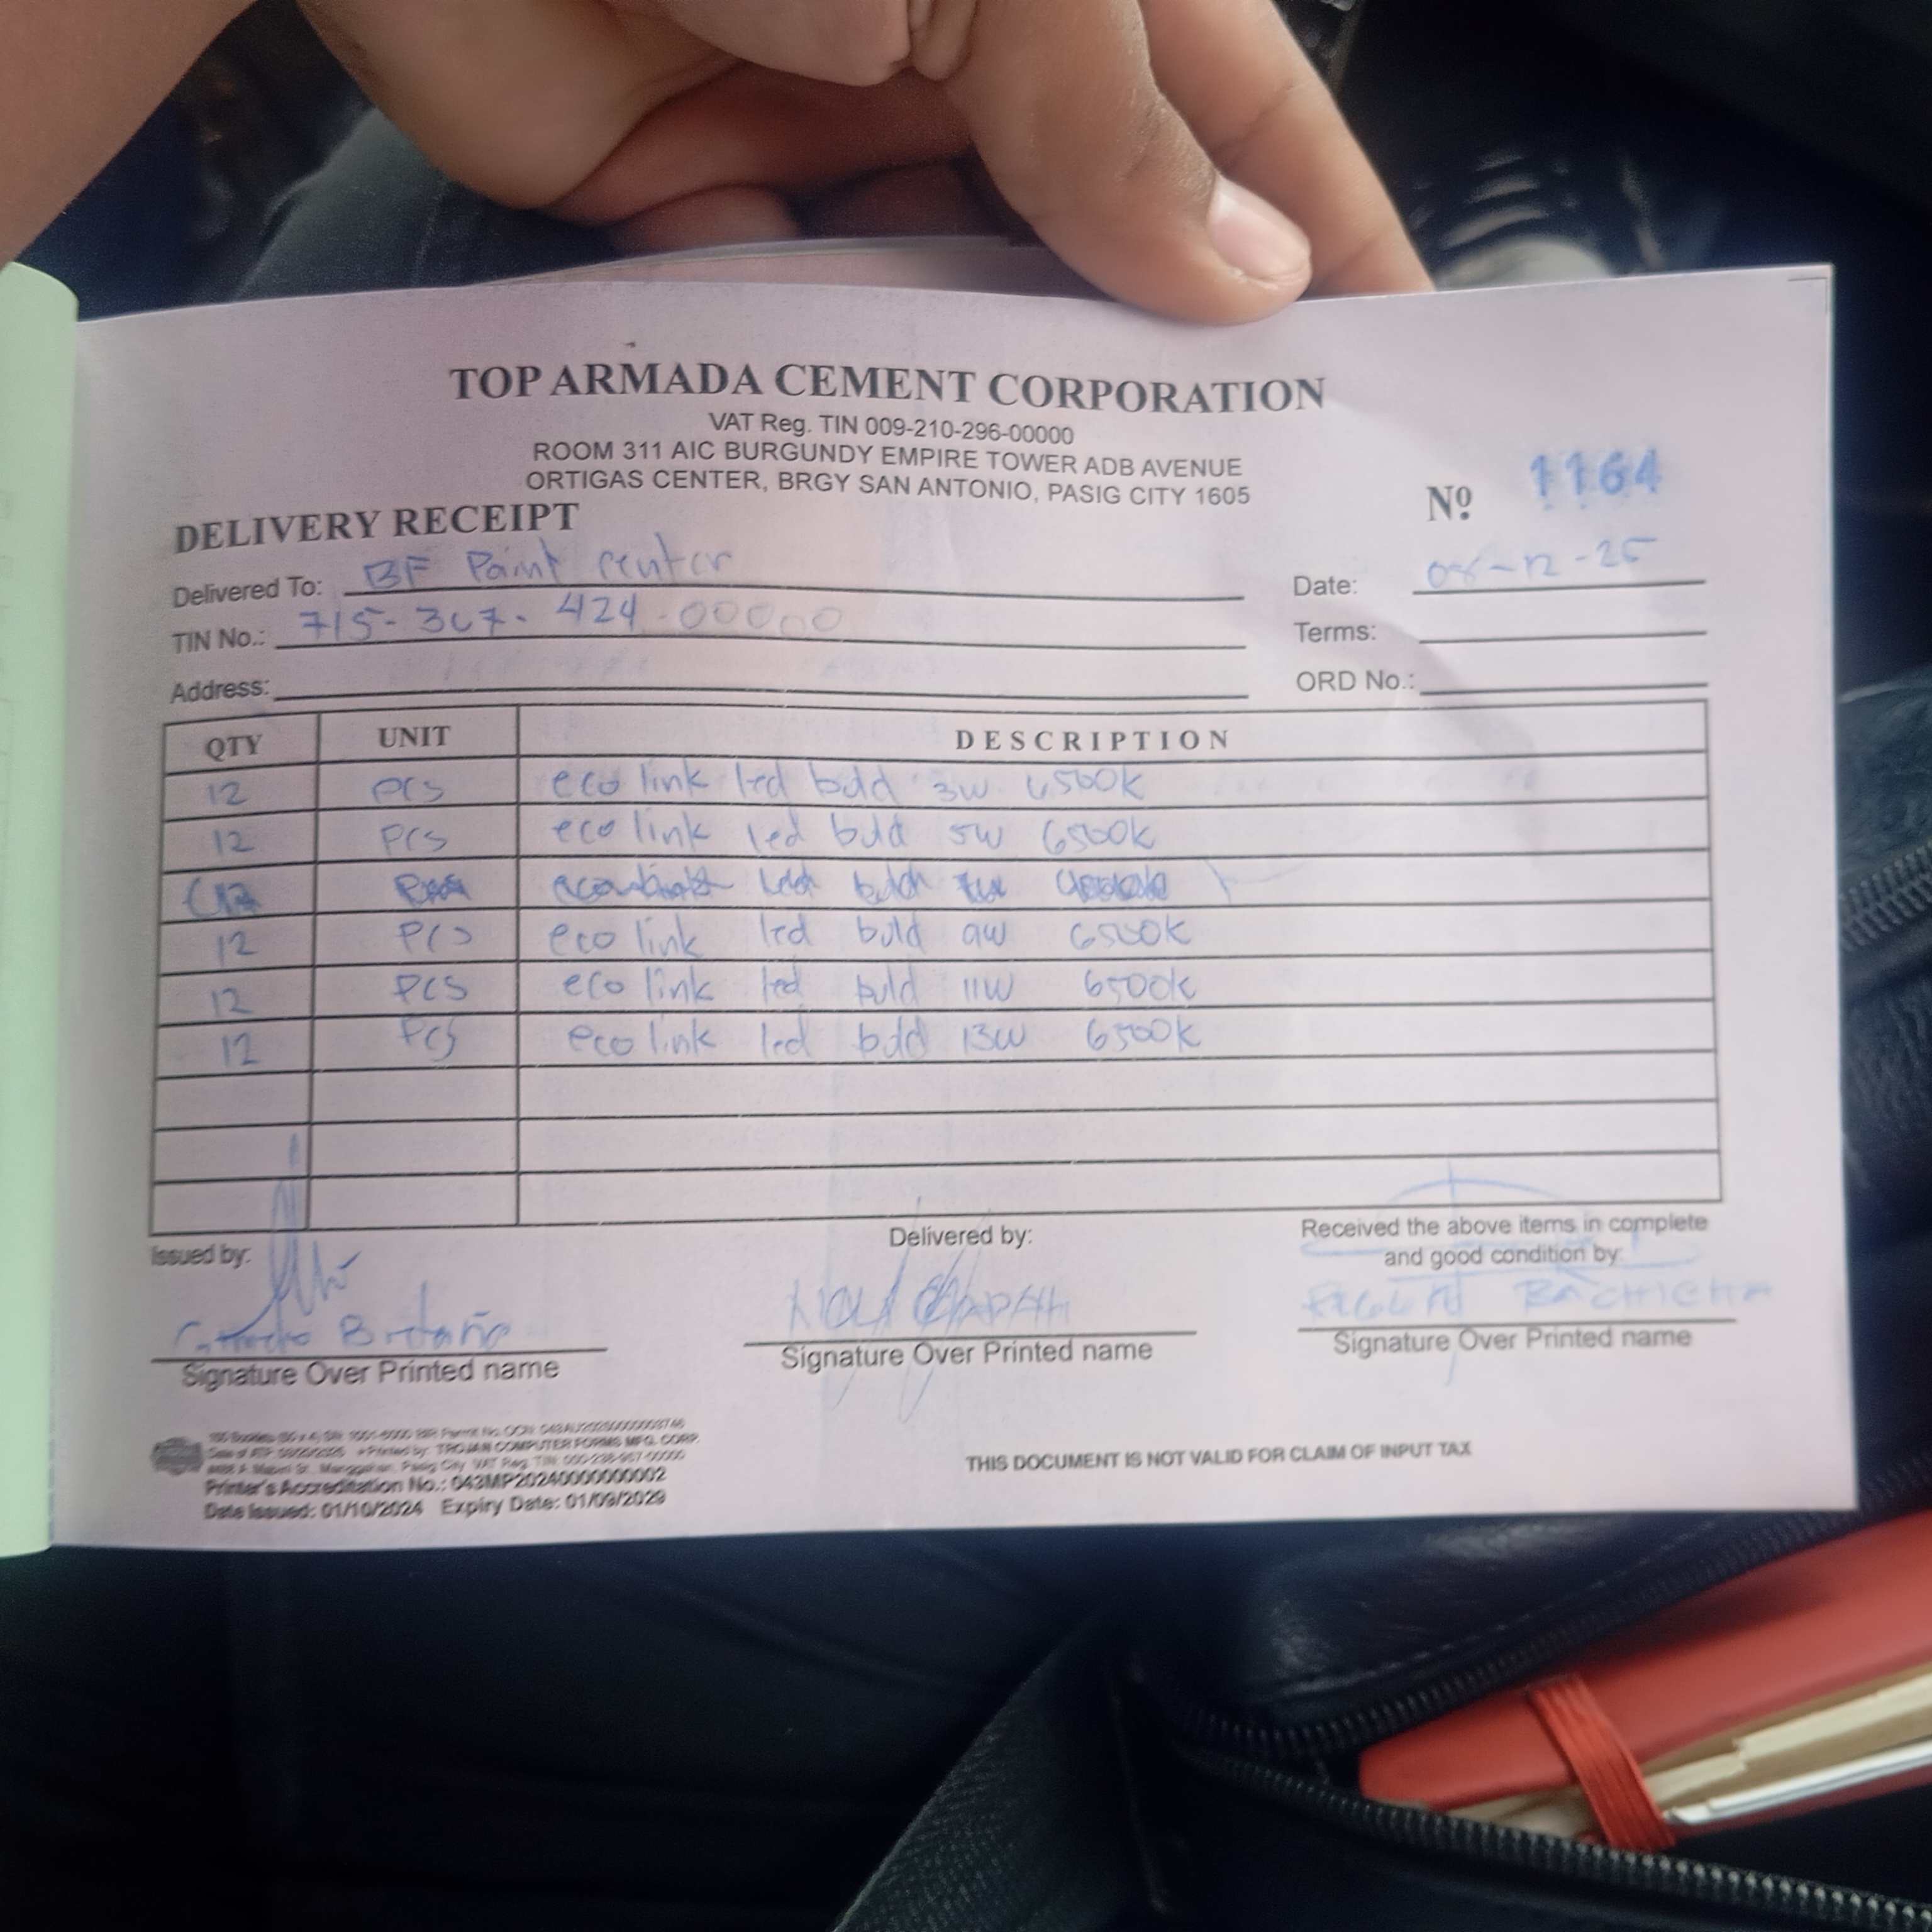 TOP ARMADA CEMENT CORPORATION
VAT Reg. TIN 009-210-296-00000
ROOM 311 AIC BURGUNDY EMPIRE TOWER ADB AVENUE
ORTIGAS CENTER, BRGY SAN ANTONIO, PASIG CITY 1605
DELIVERY RECEIPT
Nº 1164
Delivered To: BF Paint center
Date: 08-12-25
TIN No.: 715-367-424-00000
Terms:
Address:
ORD No.:
QTY UNIT DESCRIPTION
12 pcs eco link led buld 3w 6500k
12 pcs eco link led buld 5w 6500k
12 pcs eco link led buld 9w 6500k
12 pcs eco link led buld 11w 6500k
12 pcs eco link led buld 13w 6500k
Issued by:
Delivered by:
Received the above items in complete
and good condition by:
Signature Over Printed name
Signature Over Printed name
Signature Over Printed name
Printed by: TROJAN COMPUTER FORMS MFG. CORP.
Printer's Accreditation No.: 043MP20240000000002
Date Issued: 01/10/2024 Expiry Date: 01/09/2029
THIS DOCUMENT IS NOT VALID FOR CLAIM OF INPUT TAX